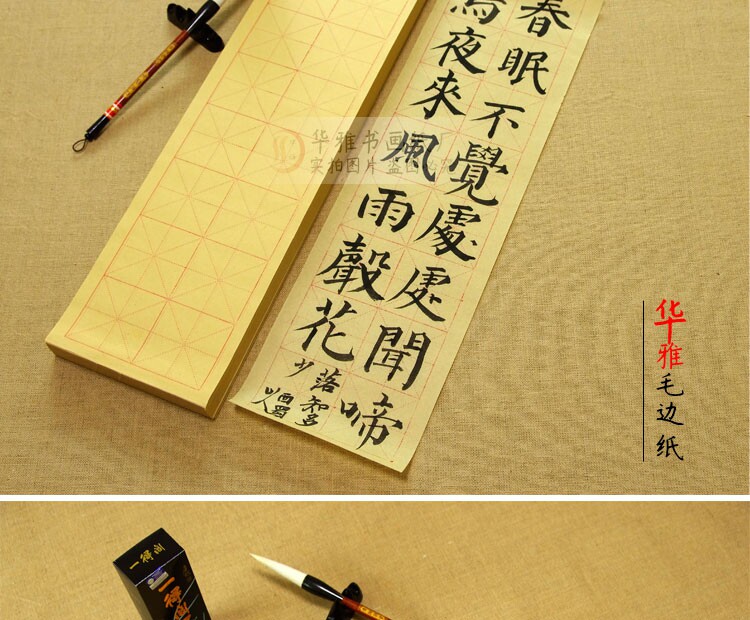 春眠不覺處處聞啼
鳥夜來風雨聲花
落知多
少
西蜀
华雅书画
实拍图片 盗图必究
华雅毛边纸
一得阁
一得阁